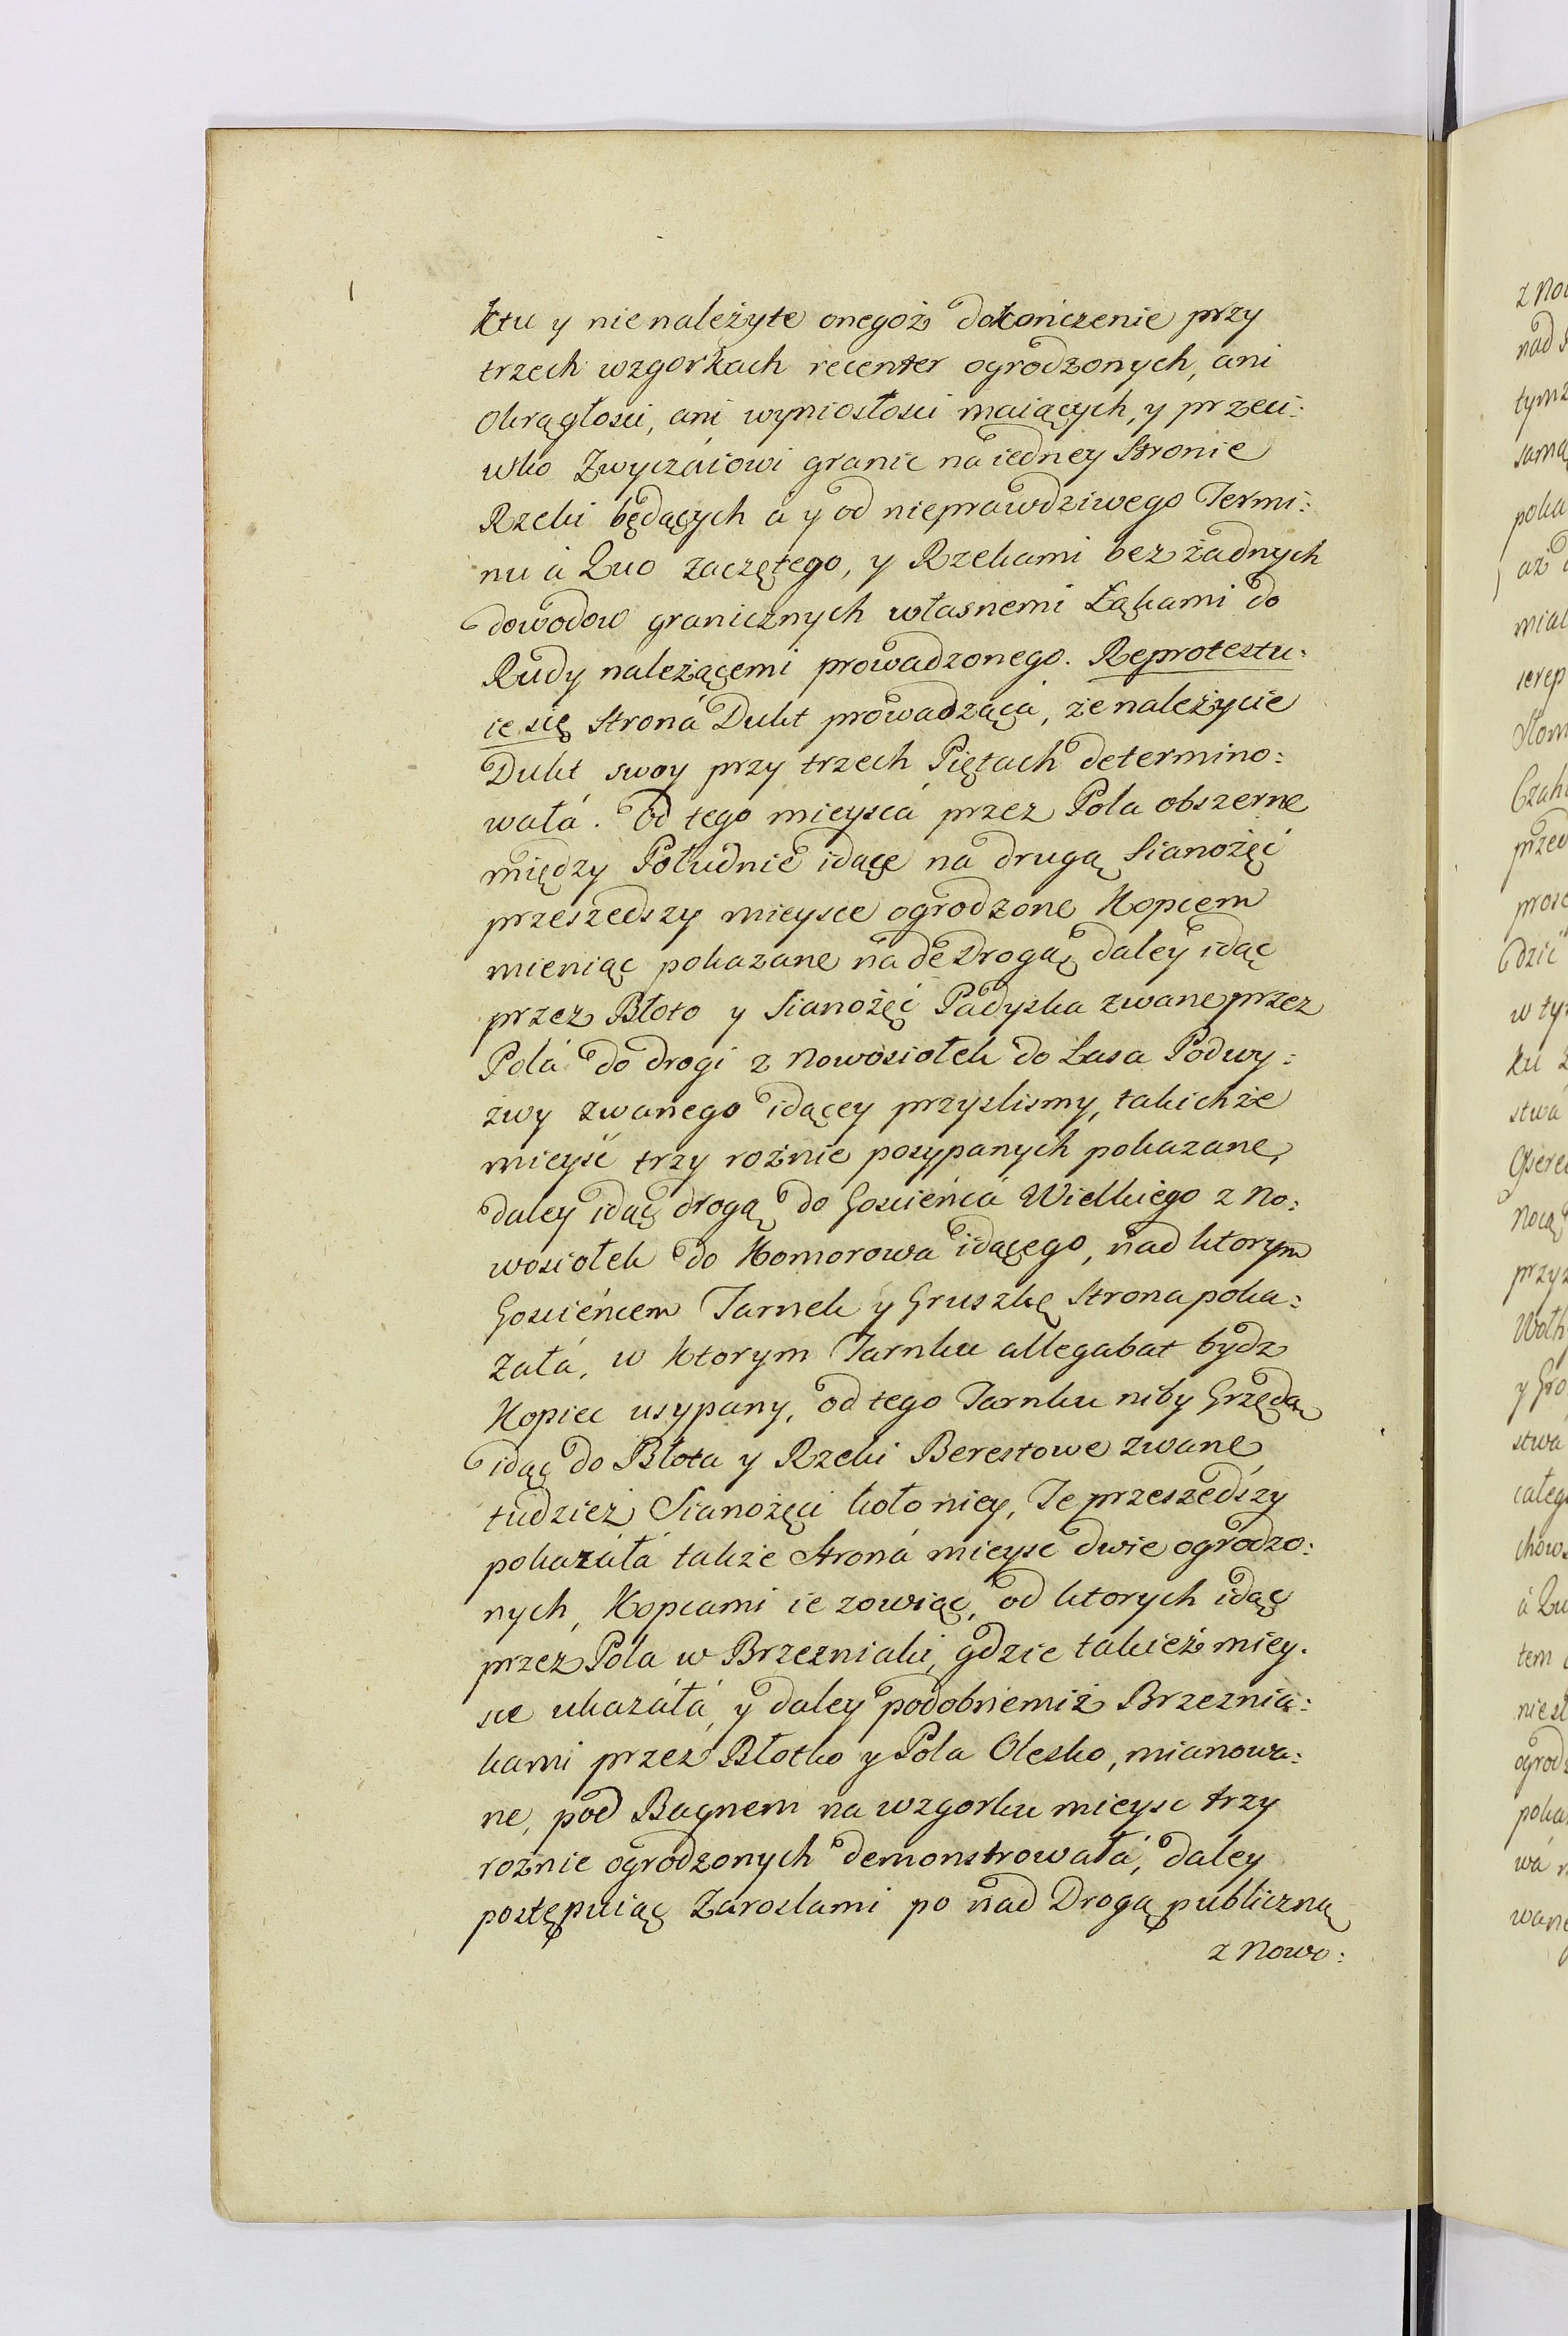 ktu y nienależyte onegoż dokończenie przy
trzech wzgorkach recenter ogrodzonych, ani
Okrągłosci, ani wyniosłosci maiących, y przeci:
wko Zwyczáiowi granic ná iedney Stronie
Rzeki będących á y od nieprawdziwego Termi:
nu á Quo zaczętego, y Rzekami bez żadnych
dowodow granicznych własnemi Łąkami do
Rudy należącemi prowadzonego. Reprotestu:
ie się Stroná Dukt prowadząca, że należycie
Dukt swoy przy trzech Piętach determino:
wałá. Od tego mieyscá przez Pola obszerne
między Południe idące na drugą Sianożęć
przeszedszy mieysce ogrodzone Kopcem
mieniąc pokazane nade Drogą, daley idąc
przez Błoto y Sianożęć Padyska zwane przez
Polá do drogi z Nowosiołek do Lasa Podwy:
zwy zwanego idącey przyslismy, takichże
mieysć trzy rożnie posypanych pokazane,
daley idąc drogą do Gościeńcá Wielkiego z No:
wosiołek do Komorowa idącego, nad ktorym
Gościeńcem Tarnek y Gruszkę Strona poka:
załá, w ktorym Tarnku allegabat bydz
Kopiec usypany, od tego Tarnku niby Grzędą
idąc do Błota y Rzeki Berestowe zwane,
tudzież Sianożęci koło niey, Te przeszedszy
pokazáłá także Stroná mieysc dwie ogrodzo:
nych, Kopcami ie zowiąc, od ktorych idąc
przez Pola w Brzezniaki, gdzie takież miey.
sce ukazáłá, y daley podobnemiż Brzeznia:
kami przez Błotko y Pola Olesko, mianowa:
ne, pod Bagnem na wzgorku mieysc trzy
rożnie ogrodzonych demonstrowałá, daley
postępuiąc Zaroslami po nad Drogą publiczną
z Nowo: